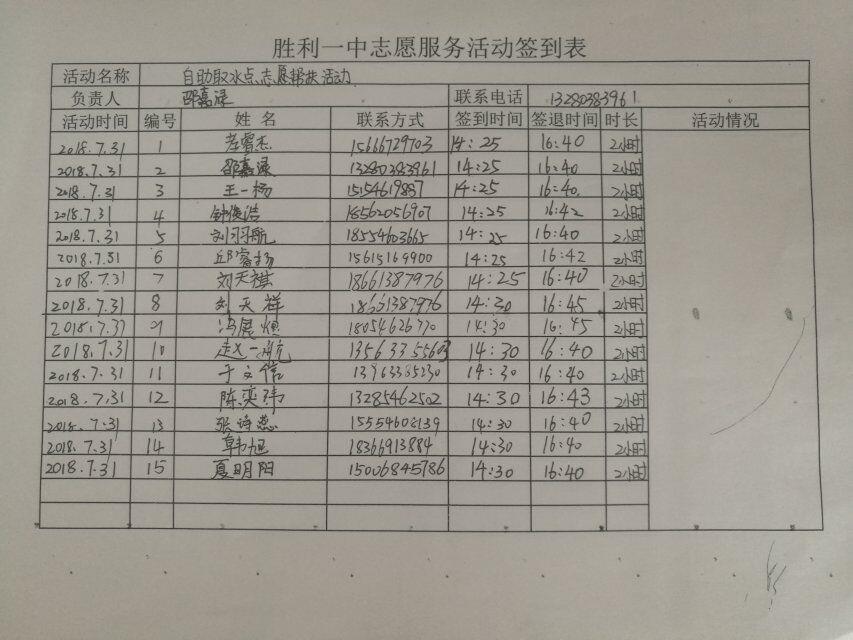 胜利一中志愿服务活动签到表
活动名称 自助取水点志愿帮扶活动
负责人 邵嘉渌 联系电话 13280383961
活动时间 编号 姓名 联系方式 签到时间 签退时间 时长 活动情况
2018.7.31 1 睿杰 15666729703 14:25 16:40 2小时
2018.7.31 2 邵嘉渌 13280383961 14:25 16:40 2小时
2018.7.31 3 王一杨 15154619887 14:25 16:40 2小时
2018.7.31 4 钟俊浩 18562056907 14:25 16:42 2小时
2018.7.31 5 刘羽航 18554603665 14:25 16:40 2小时
2018.7.31 6 邱睿扬 15615169900 14:25 16:42 2小时
2018.7.31 7 刘天祺 18661387976 14:25 16:40 2小时
2018.7.31 8 刘天祥 18661387976 14:30 16:45 2小时
2018.7.31 9 冯展 18054626770 14:30 16:45 2小时
2018.7.31 10 赵一航 13563355603 14:30 16:40 2小时
2018.7.31 11 于文信 13963365230 14:30 16:40 2小时
2018.7.31 12 陈奕玮 13285462502 14:30 16:43 2小时
2018.7.31 13 张诗蕊 15554602139 14:30 16:40 2小时
2018.7.31 14 韩旭 18366913884 14:30 16:40 2小时
2018.7.31 15 夏明阳 15006845786 14:30 16:40 2小时